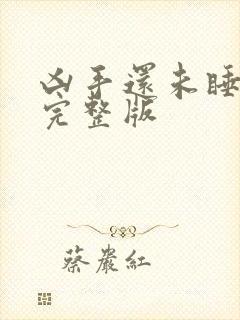 凶手還未睡
完整版
蔡巖紅